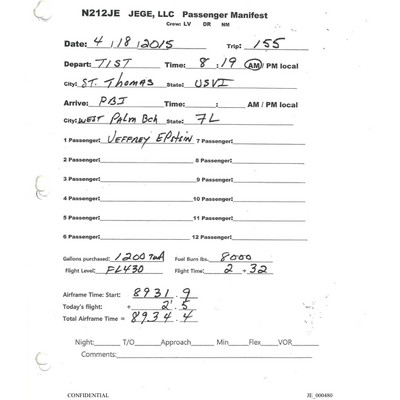 N212JE JEGE, LLC Passenger Manifest
Crew: LV DR NM
Date: 4/18/2015 Trip: 155
Depart: TIST Time: 8:19 AM / PM local
City: ST. Thomas State: USVI
Arrive: PBI Time: : AM / PM local
City: West Palm Bch State: FL
1 Passenger: Jeffrey Epstein 7 Passenger:
2 Passenger: 8 Passenger:
3 Passenger: 9 Passenger:
4 Passenger: 10 Passenger:
5 Passenger: 11 Passenger:
6 Passenger: 12 Passenger:
Gallons purchased: 1200 Fuel Burn lbs. 8000
Flight Level: FL430 Flight Time: 2 + 32
Airframe Time: Start: 8931.9
Today's flight: + 2.5
Total Airframe Time = 8934.4
Night: T/O Approach Min Flex VOR
Comments:
CONFIDENTIAL JE_000480